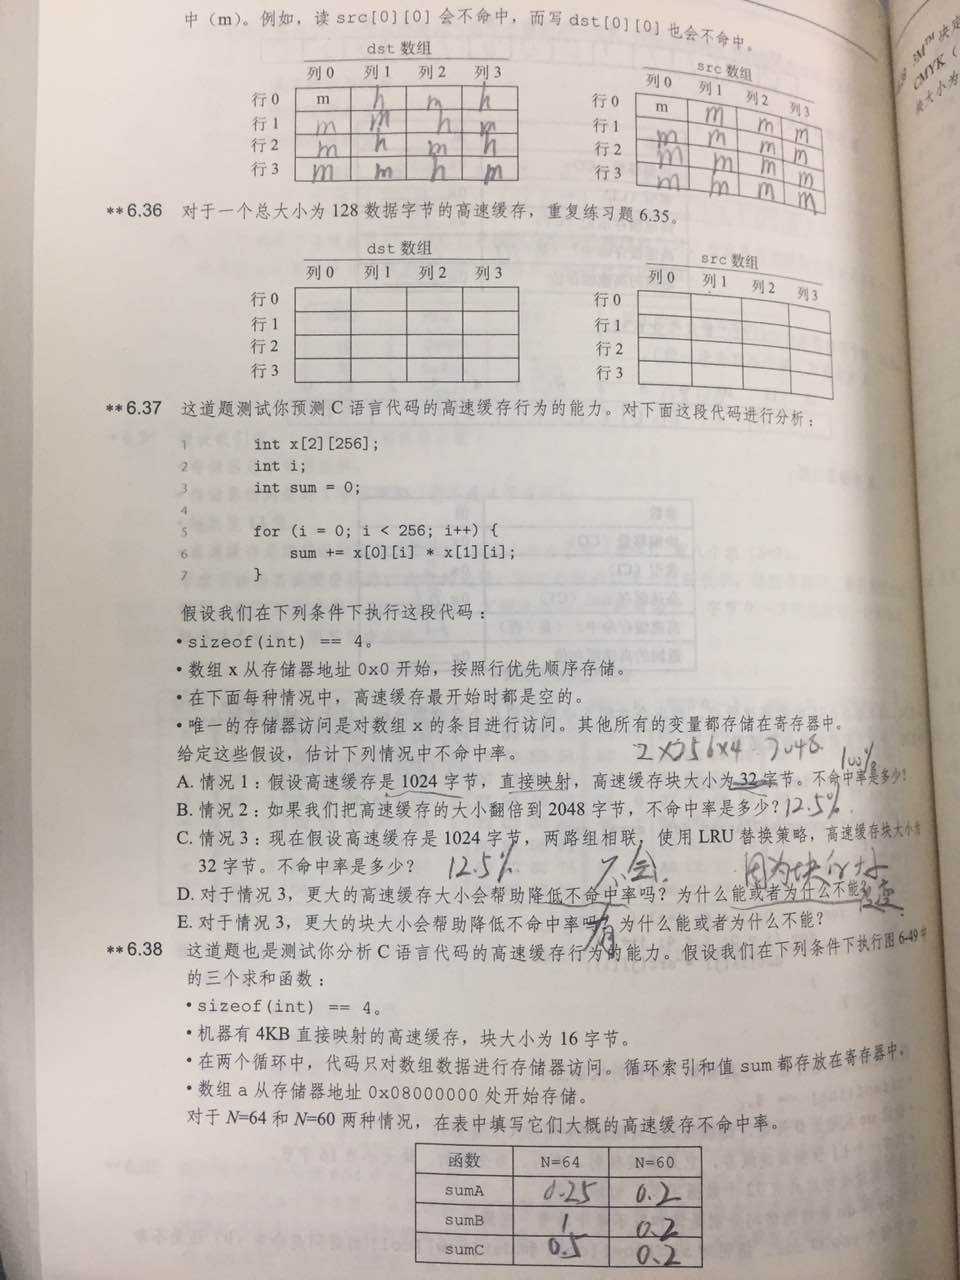 中（m）。例如，读 src[0][0] 会不命中，而写 dst[0][0] 也会不命中。
dst 数组
列 0 列 1 列 2 列 3
行 0 m h m h
行 1 m m h m
行 2 m h m h
行 3 m m h m
src 数组
列 0 列 1 列 2 列 3
行 0 m m m m
行 1 m m m m
行 2 m m m m
行 3 m m m m
**6.36 对于一个总大小为 128 数据字节的高速缓存，重复练习题 6.35。
dst 数组
列 0 列 1 列 2 列 3
行 0
行 1
行 2
行 3
src 数组
列 0 列 1 列 2 列 3
行 0
行 1
行 2
行 3
**6.37 这道题测试你预测 C 语言代码的高速缓存行为的能力。对下面这段代码进行分析：
1 int x[2][256];
2 int i;
3 int sum = 0;
4
5 for (i = 0; i < 256; i++) {
6 sum += x[0][i] * x[1][i];
7 }
假设我们在下列条件下执行这段代码：
• sizeof(int) == 4。
• 数组 x 从存储器地址 0x0 开始，按照行优先顺序存储。
• 在下面每种情况中，高速缓存最开始时都是空的。
• 唯一的存储器访问是对数组 x 的条目进行访问。其他所有的变量都存储在寄存器中。
给定这些假设，估计下列情况中不命中率。 2×256×4 2048
100%
A. 情况 1：假设高速缓存是 1024 字节，直接映射，高速缓存块大小为 32 字节。不命中率是多少？
B. 情况 2：如果我们把高速缓存的大小翻倍到 2048 字节，不命中率是多少？12.5%
C. 情况 3：现在假设高速缓存是 1024 字节，两路组相联，使用 LRU 替换策略，高速缓存块大小为
32 字节。不命中率是多少？ 12.5% 不会. 因为块的大小
D. 对于情况 3，更大的高速缓存大小会帮助降低不命中率吗？为什么能或者为什么不能？
E. 对于情况 3，更大的块大小会帮助降低不命中率吗？为什么能或者为什么不能？
有
**6.38 这道题也是测试你分析 C 语言代码的高速缓存行为的能力。假设我们在下列条件下执行图 6-49 中
的三个求和函数：
• sizeof(int) == 4。
• 机器有 4KB 直接映射的高速缓存，块大小为 16 字节。
• 在两个循环中，代码只对数组数据进行存储器访问。循环索引和值 sum 都存放在寄存器中。
• 数组 a 从存储器地址 0x08000000 处开始存储。
对于 N=64 和 N=60 两种情况，在表中填写它们大概的高速缓存不命中率。
函数 N=64 N=60
sumA 0.25 0.2
sumB 1 0.2
sumC 0.5 0.2
3M™ 决定
CMYK（
块大小为